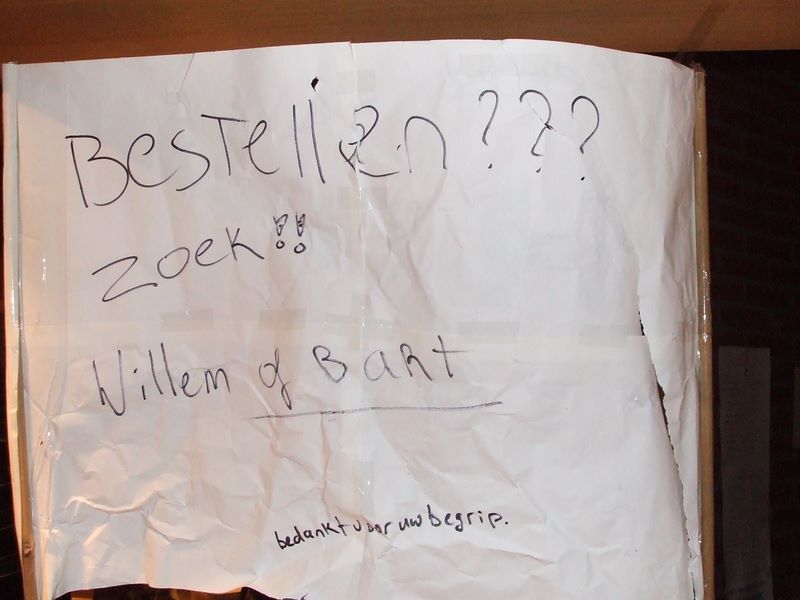 Bestellen???
zoek!!
Willem of Bart
bedankt voor uw begrip.